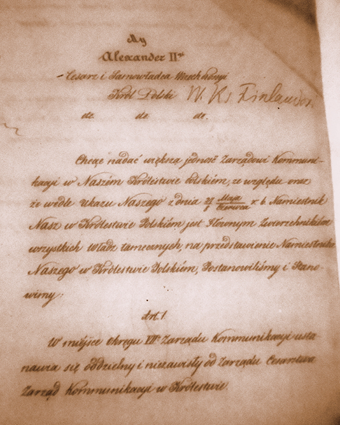 My
Alexander IIgi
Cesarz i Samowładca Wszech Rosyi
Król Polski W. Ks. Finlandzki
etc. etc. etc.
Chcąc nadać większą jedność Zarządowi Kommuni-
kacyi w Naszém Królestwie Polskiém, ze względu oraz
że wedle ukazu Naszego z dnia 27 Maja / 8 Czerwca r. b. Namiestnik
Nasz w Królestwie Polskiém jest Głównym Zwierzchnikiem
wszystkich władz tamecznych, na przedstawienie Namiestnika
Naszego w Królestwie Polskiém, Postanowiliśmy i Stano-
wimy:
Art. 1.
W miejsce Okręgu XIIIgo Zarządu Kommunikacyi usta-
nawia się oddzielny i niezawisły od Zarządu Cesarstwa
Zarząd Kommunikacyi w Królestwie.